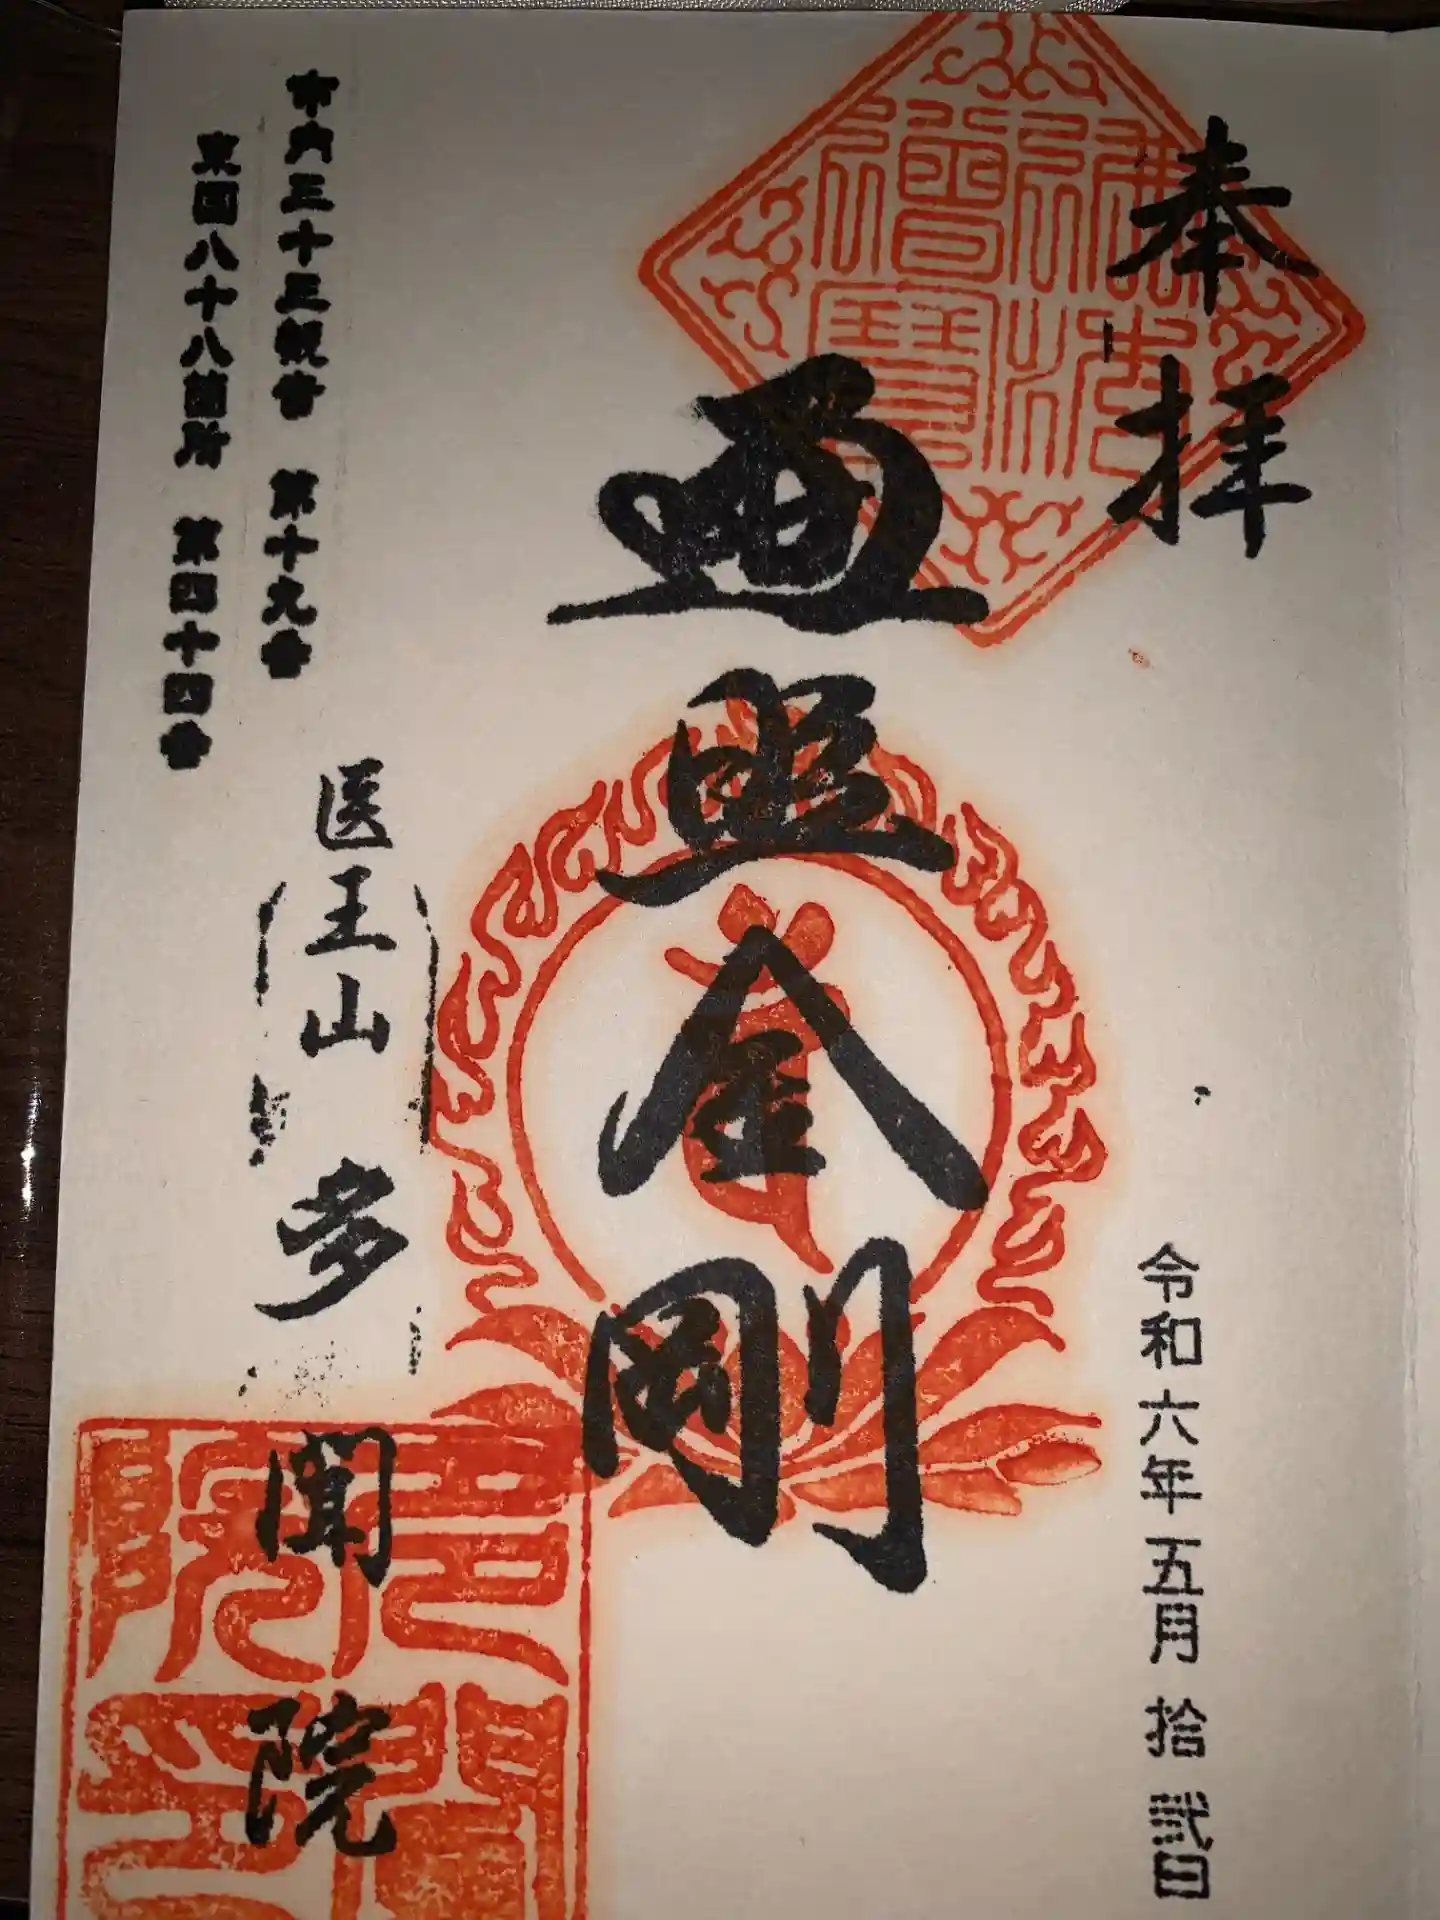 奉拝
令和六年五月拾弐日
佛法僧寶
遍照金剛
医王山 多聞院
多聞院印
市内三十三観音 第十九番
東国八十八箇所 第四十四番